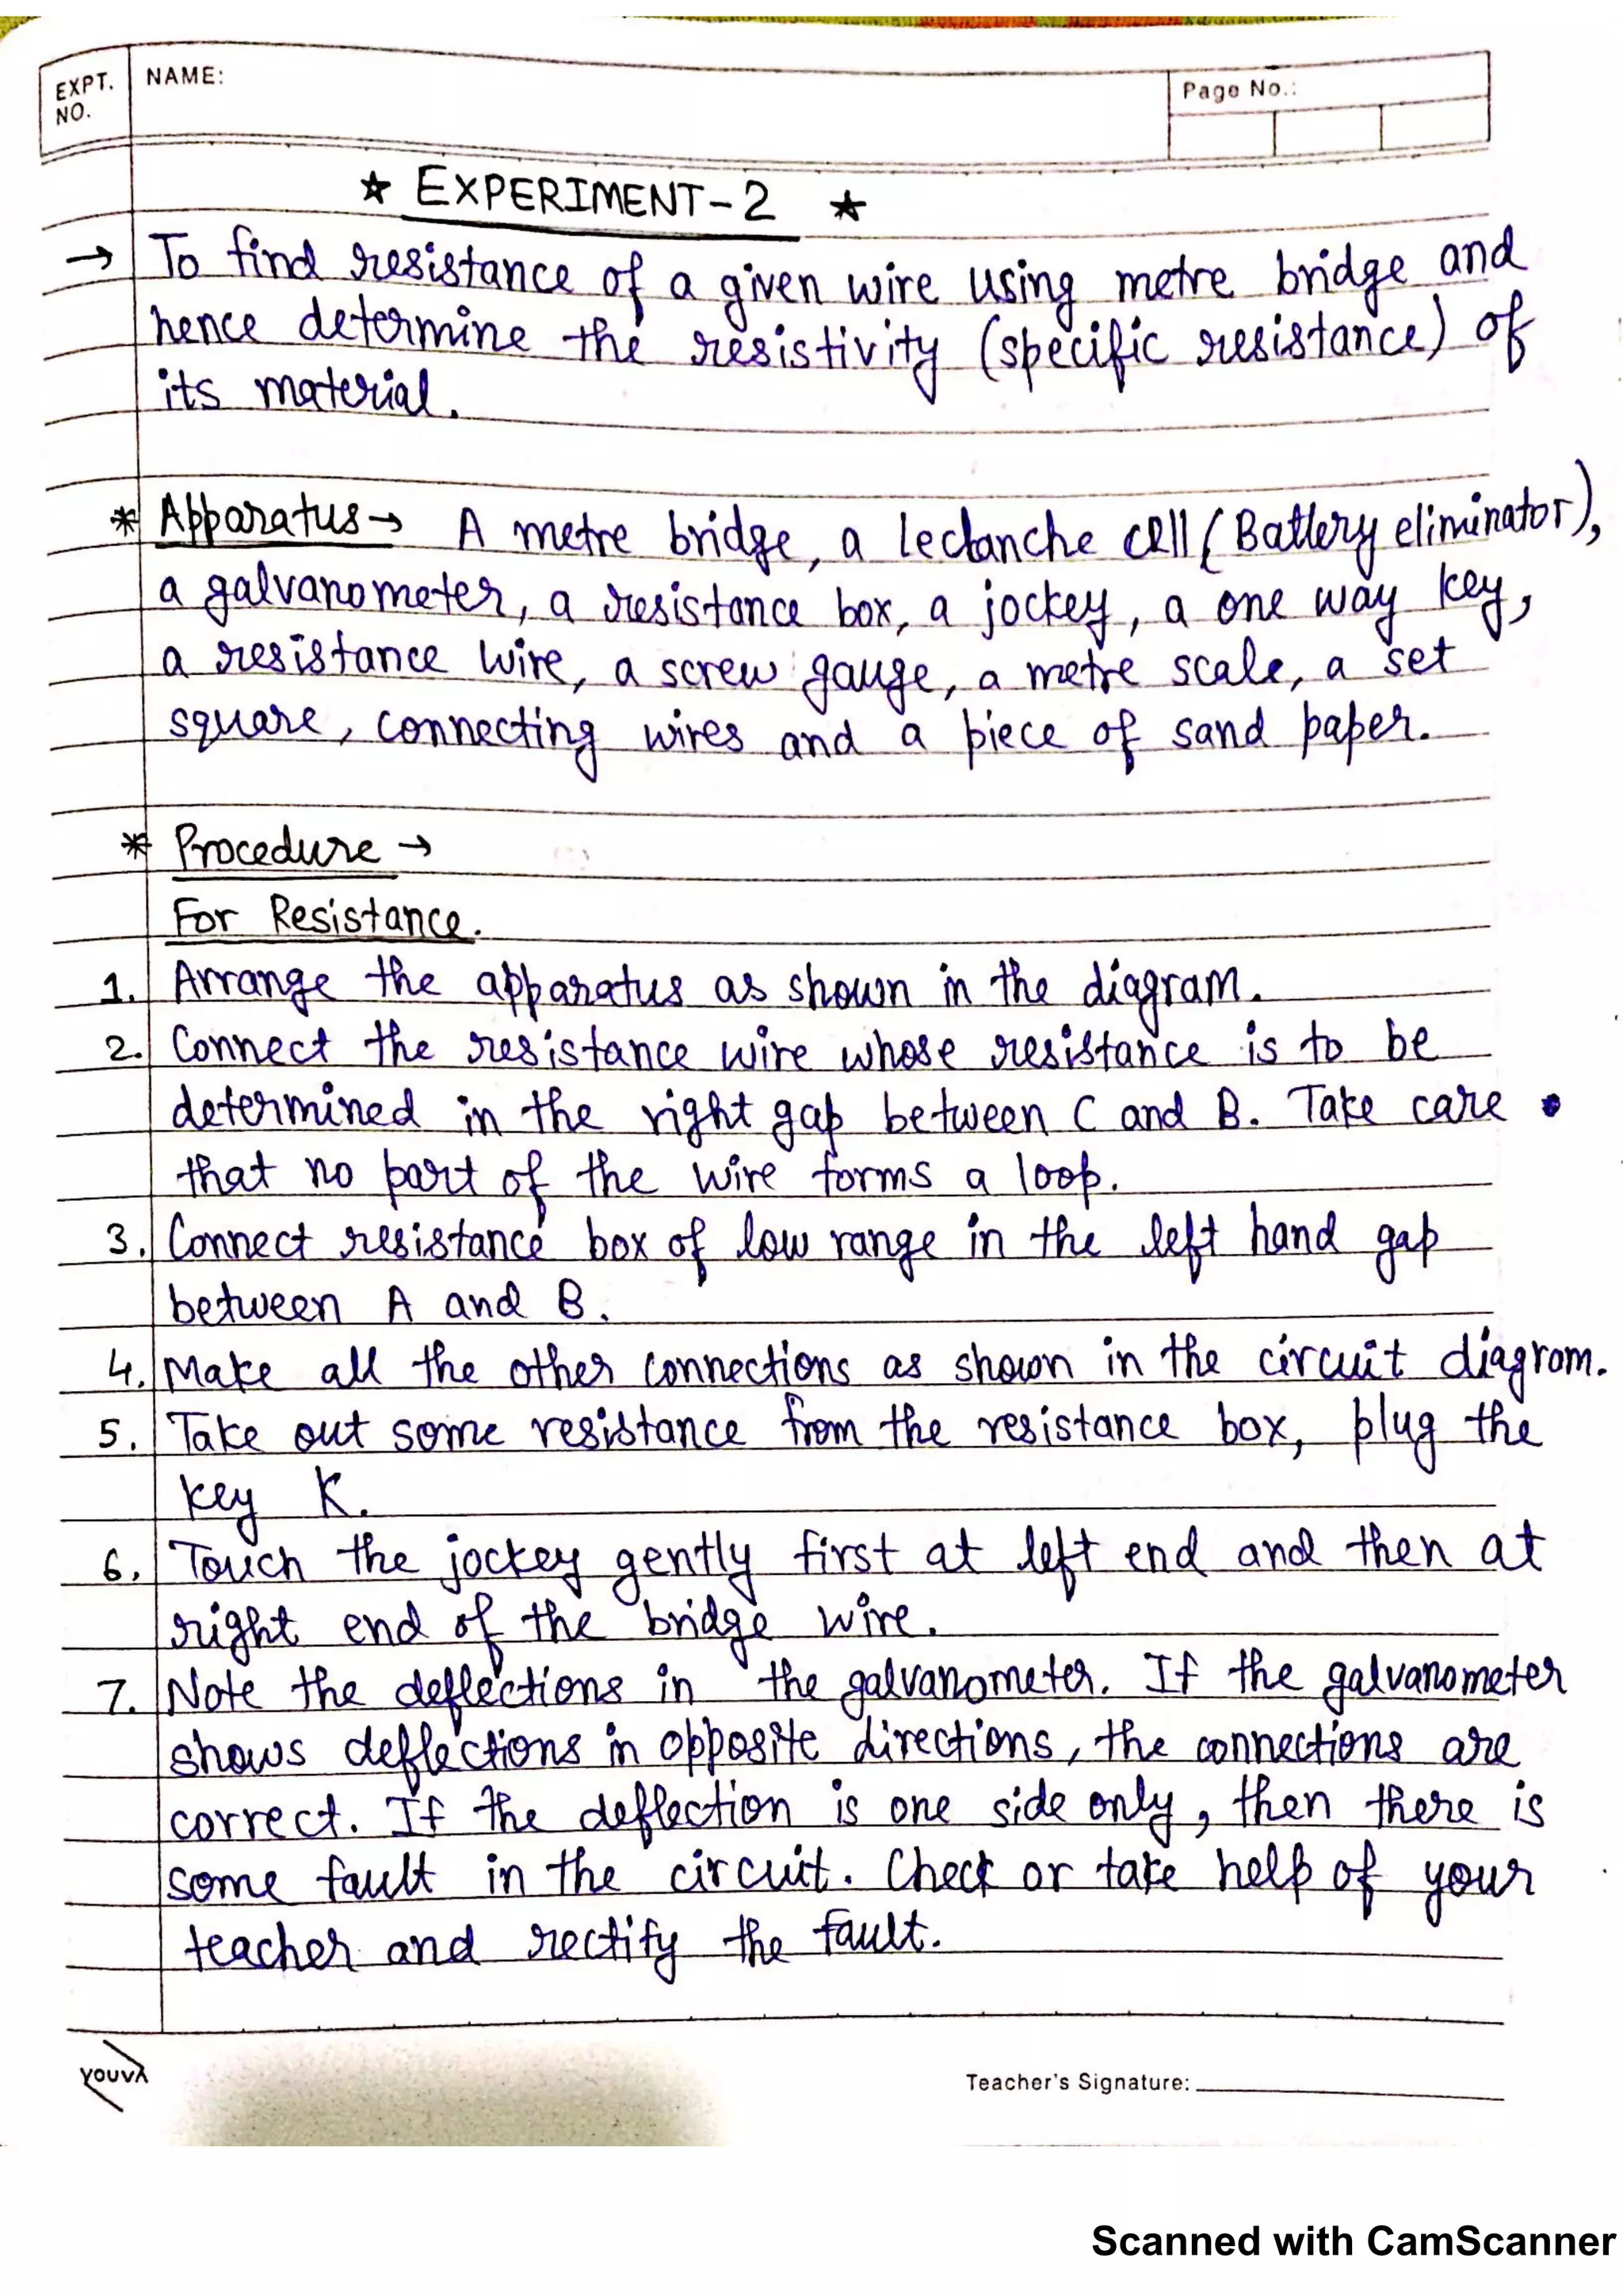 EXPT. NO.
NAME:
Page No.:
★ EXPERIMENT-2 ★
→ To find resistance of a given wire using metre bridge and
hence determine the resistivity (specific resistance) of
its material.
* Apparatus → A metre bridge, a leclanche cell (Battery eliminator),
a galvanometer, a resistance box, a jockey, a one way key,
a resistance wire, a screw gauge, a metre scale, a set
square, connecting wires and a piece of sand paper.
* Procedure →
For Resistance.
1. Arrange the apparatus as shown in the diagram.
2. Connect the resistance wire whose resistance is to be
determined in the right gap between C and B. Take care
that no part of the wire forms a loop.
3. Connect resistance box of low range in the left hand gap
between A and B.
4. Make all the other connections as shown in the circuit diagram.
5. Take out some resistance from the resistance box, plug the
key K.
6. Touch the jockey gently first at left end and then at
right end of the bridge wire.
7. Note the deflections in the galvanometer. If the galvanometer
shows deflections in opposite directions, the connections are
correct. If the deflection is one side only, then there is
some fault in the circuit. Check or take help of your
teacher and rectify the fault.
youva
Teacher's Signature:
Scanned with CamScanner